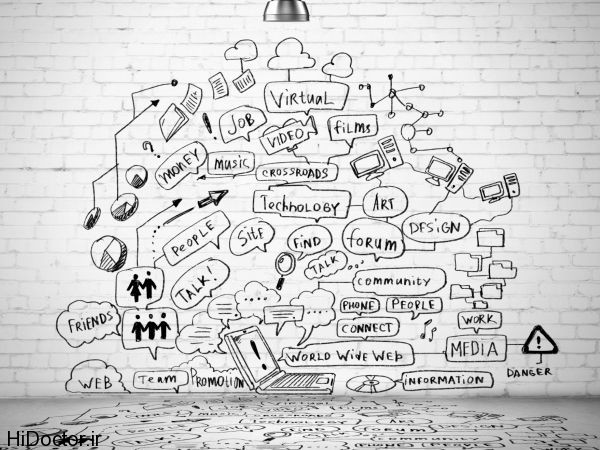 VIRTUAL
JOB
VIDEO
FILMS
?
!
MONEY
MUSIC
CROSSROADS
TECHNOLOGY
ART
PEOPLE
SITE
FIND
FORUM
DESIGN
TALK!
TALK
COMMUNITY
PHONE
PEOPLE
FRIENDS
CONNECT
WORK
!
WORLD WIDE WEB
MEDIA
!
DANGER
WEB
TEAM
PROMOTION
INFORMATION
TECHNOLOGY
ART
FORUM
DESIGN
COMMUNITY
HiDoctor.ir